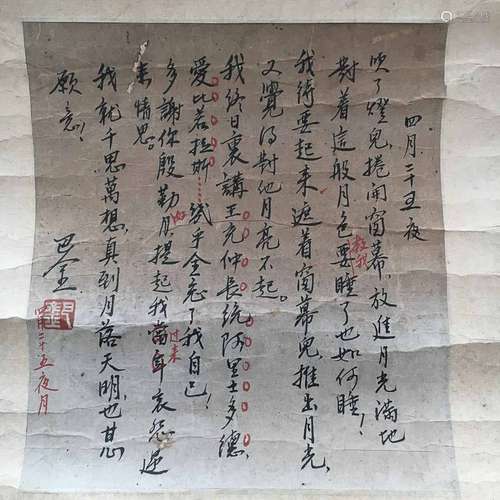 四月二十五夜
吹了燈兒捲開窗幕放進月光滿地
對着這般月色教我要睡了也如何睡！
我待要起来遮着窗幕兒推出月光、
又覺得對他月亮不起。
我終日裏講王充仲長統阿里士多德、
愛比若拉斯……幾乎全忘了我自己！
多謝你殷勤好月提起我過来當年哀怨
来情思。
我就千思萬想，真到月落天明，也甘心
願意！
巴金
二十五夜月